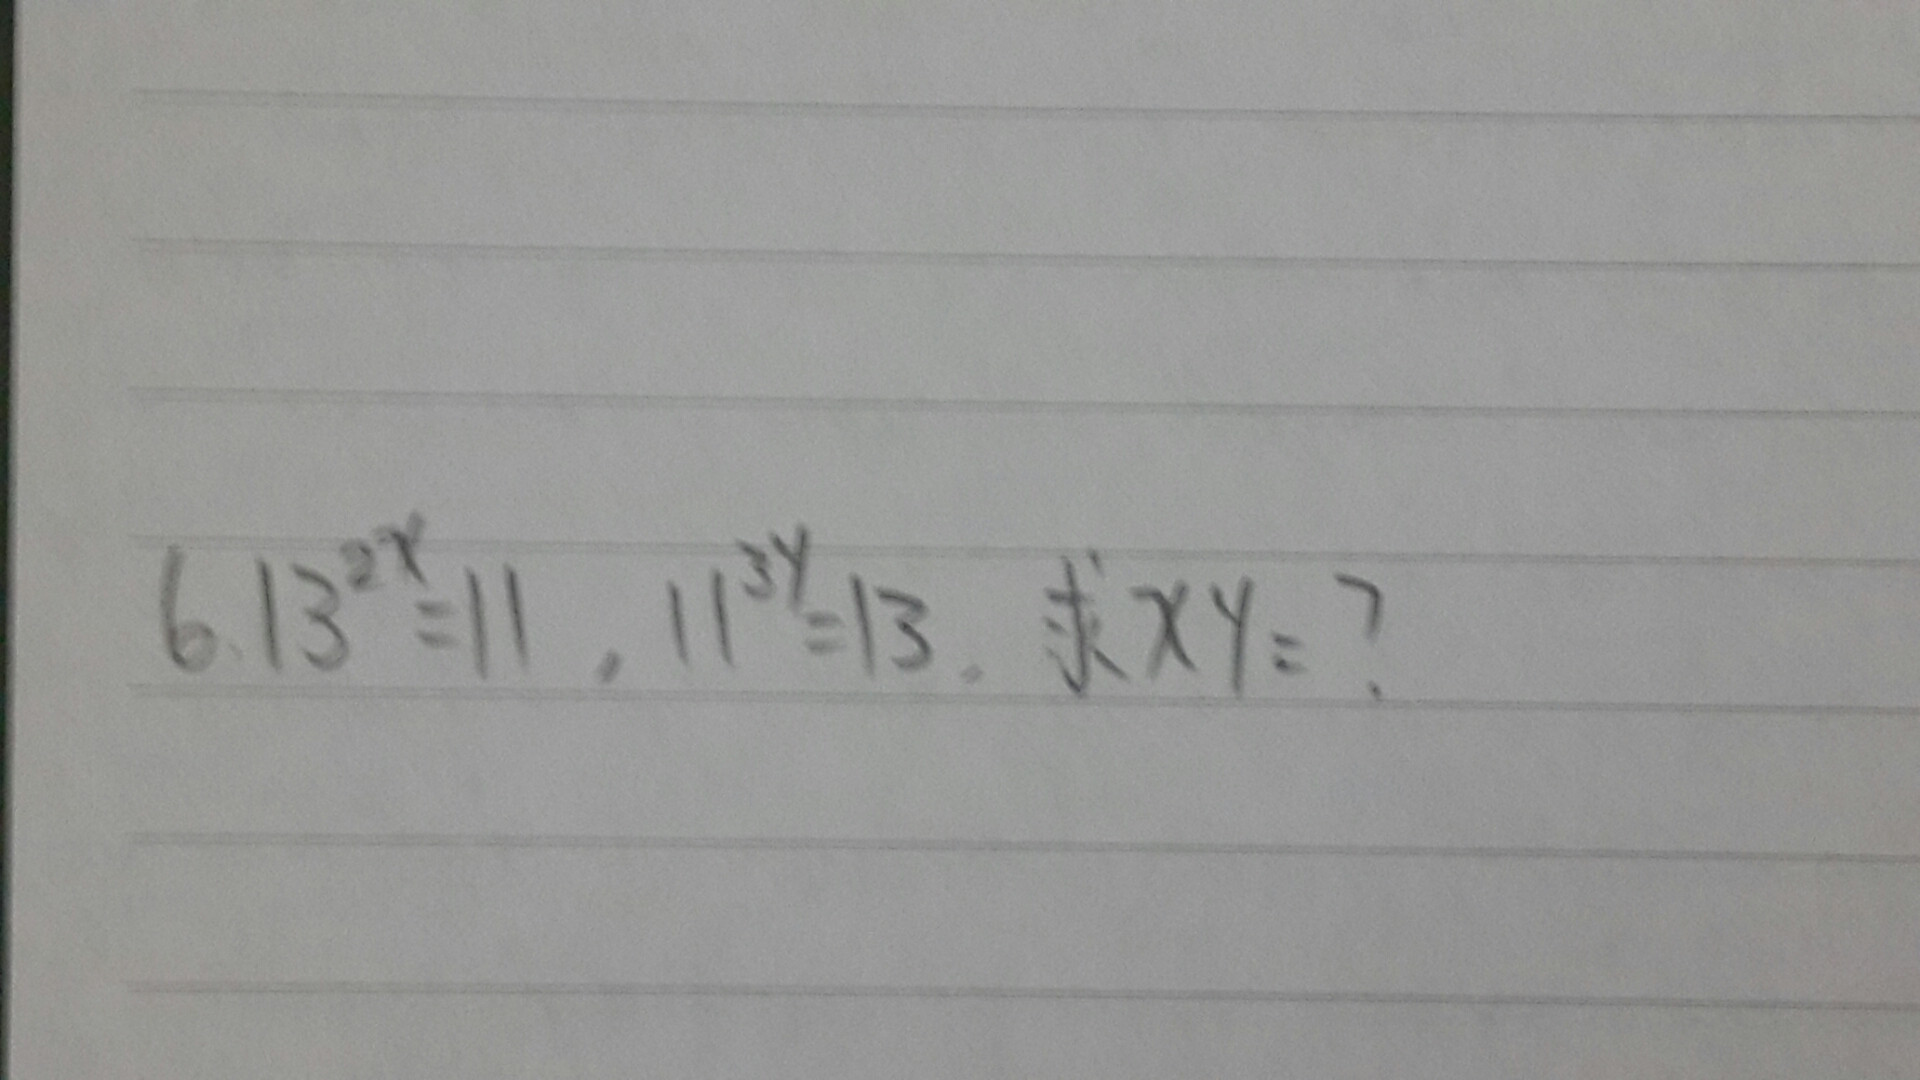 6. 13^{2x}=11, 11^{3y}=13. 求xy=?